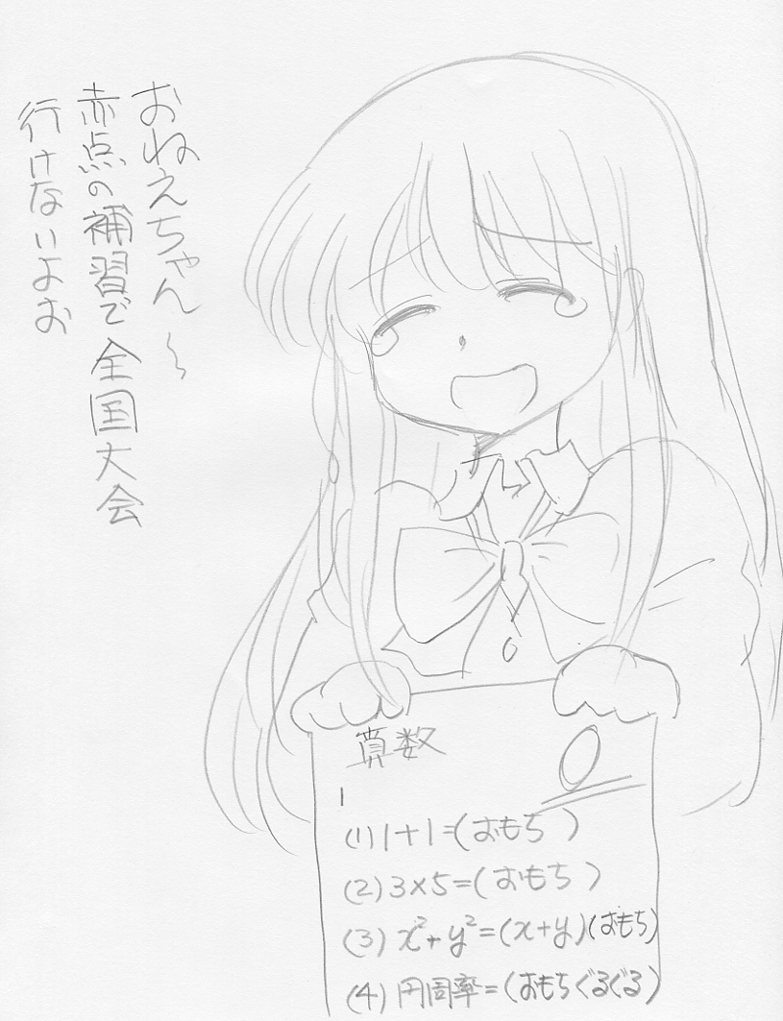 おねえちゃん～
赤点の補習で全国大会
行けないよお
算数
0
1
(1) 1+1=(おもち)
(2) 3×5=(おもち)
(3) x²+y²=(x+y)(おもち)
(4) 円周率=(おもちぐるぐる)